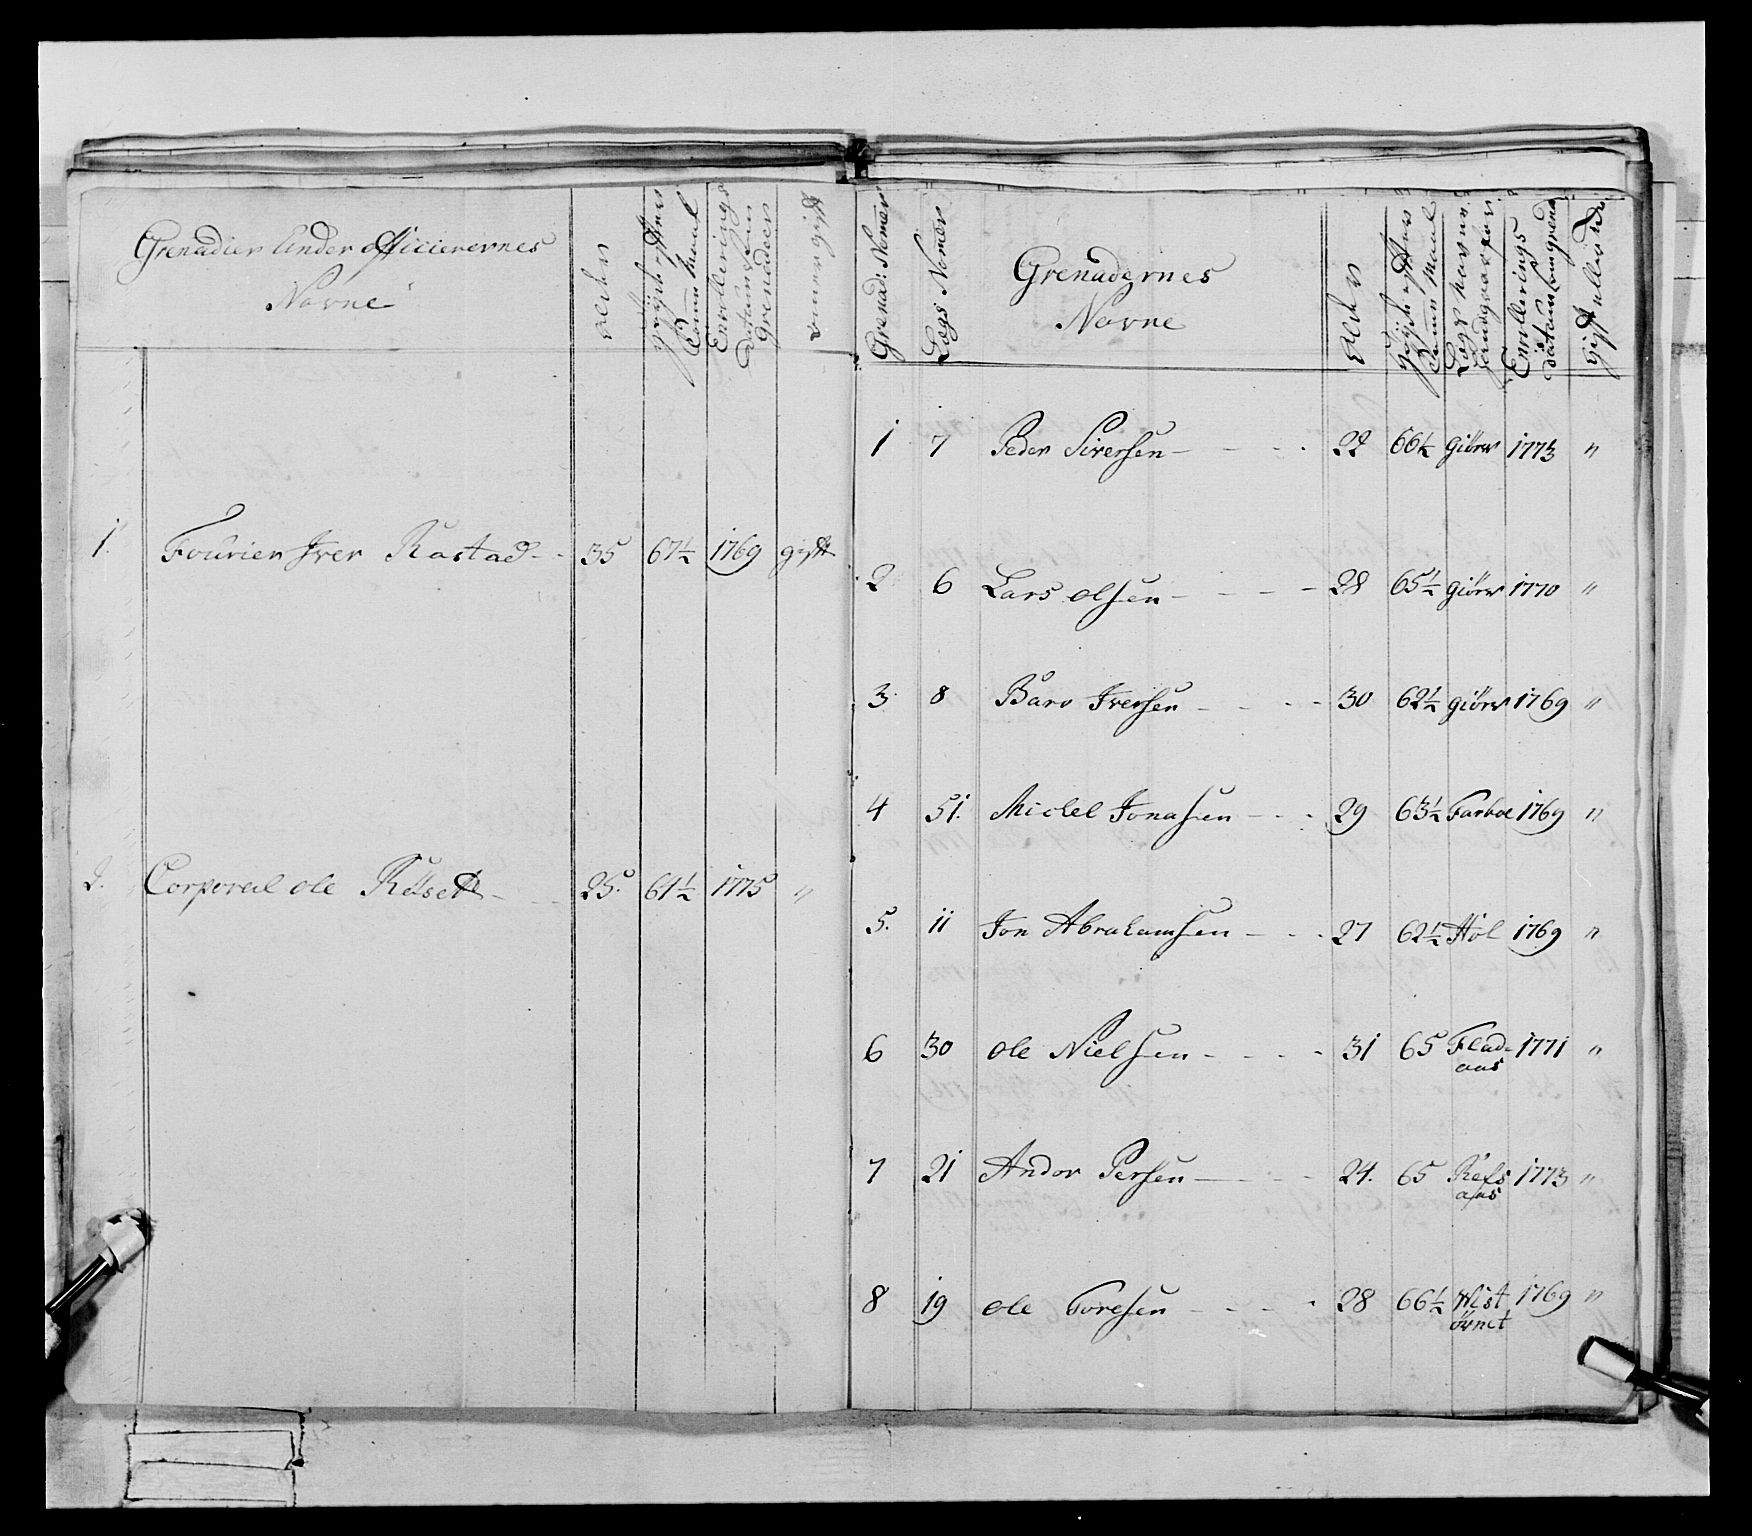 Grenadier Under Officierernes
Navne
Alder
Enrollerings
Datum som
Grenadeer
1. Fourier Iver Rastad 35 67½ 1769 gift
2. Corporal Ole Röset 25. 61½ 1775 "
Grenad: Nomer
Lægs Nomer
Grenadernes
Navne
Alder
Enrollerings
datum som grena
Gift eller Ei
1 7 Peder Siversen 22 66½ Giörv 1773 "
2 6 Lars Olsen 28 65½ Giörv 1770 "
3. 8 Baro Iversen 30 62½ Giörv 1769 "
4 51. Michel Jonasen 29 63½ Farboe 1769 "
5. 11 Jon Abrahamsen 27 62½ Hol 1769 "
6 30 Ole Nielsen 31 65 Flad-
aas 1771 "
7 21 Andor Persen 24. 65 Refs
aas 1773 "
8 19 Ole Toresen 28 66½ Wist
örnet 1769 "